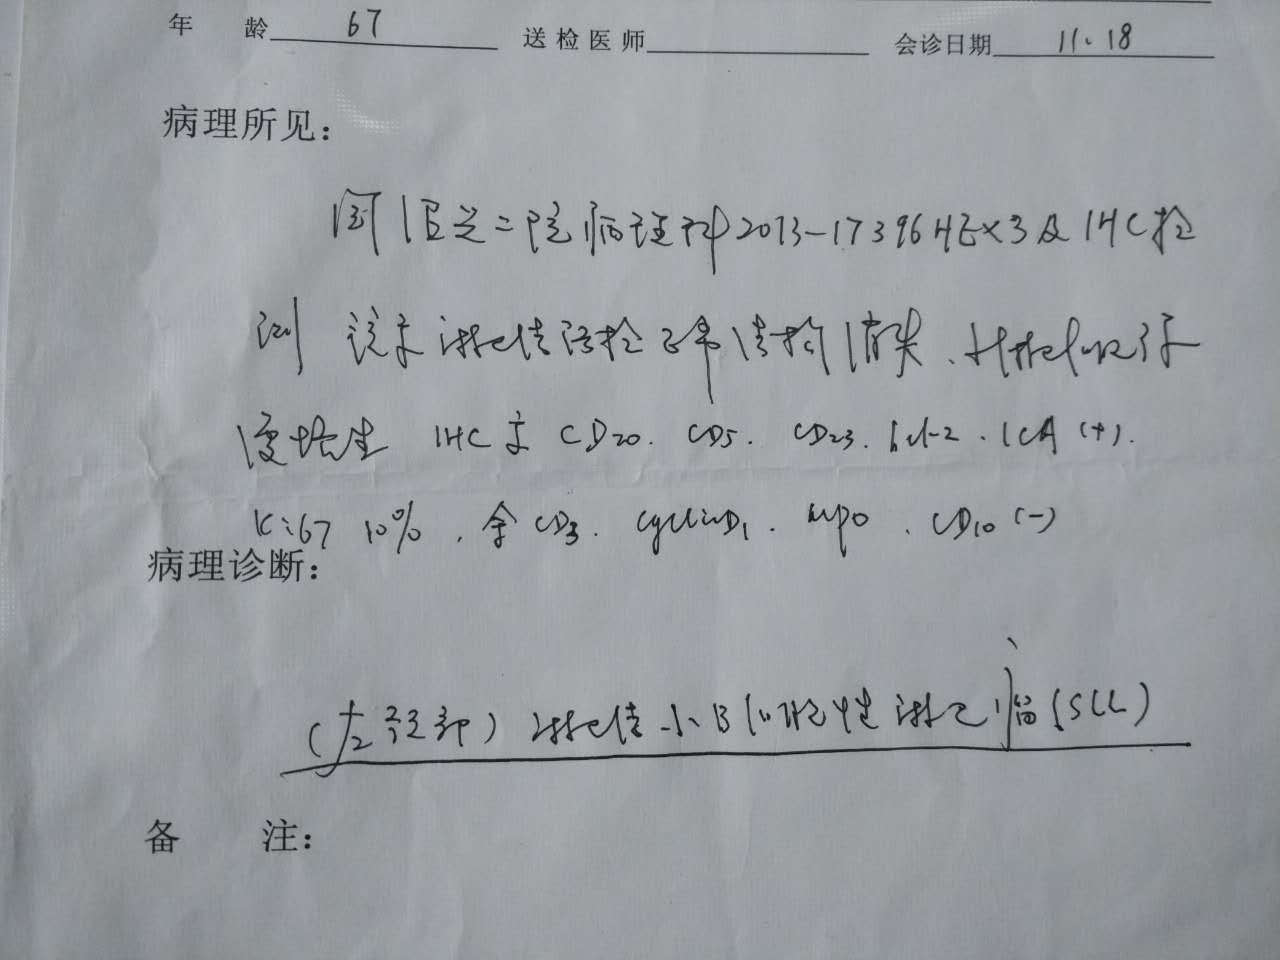 年 龄 67 送检医师 会诊日期 11.18
病理所见：
阅 医学二院病理科2013-17396 HE×3及IHC检
测 淋巴结活检 结构消失、
增生 IHC示 CD20. CD5. CD23. bcl-2. LCA (+).
Ki67 10%, 余 CD3. CyclinD1. MPO. CD10 (-)
病理诊断：
(左颈部) 淋巴结小B细胞性淋巴瘤(SLL)
备 注：